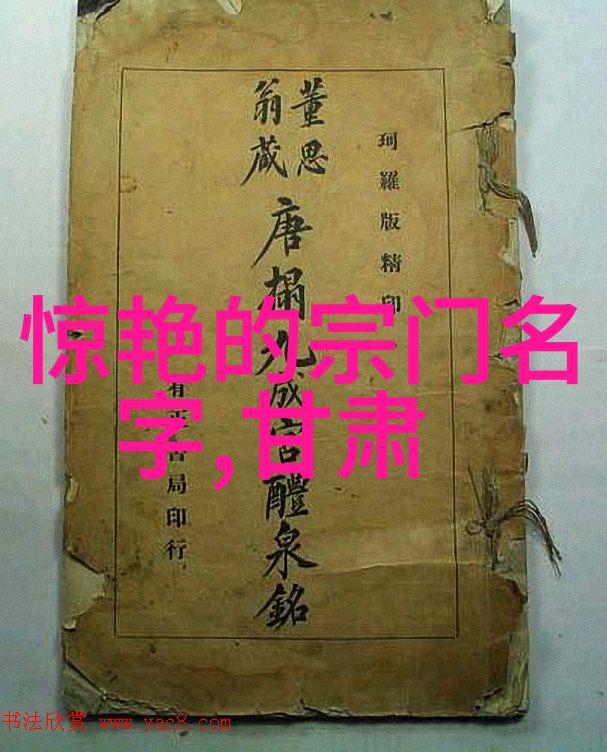 珂羅版精印
董思
翁藏
唐搨九成宮醴泉銘
有正書局印行
惊艳的宗门名
字,甘肃
书法欣赏 www.yac8.com